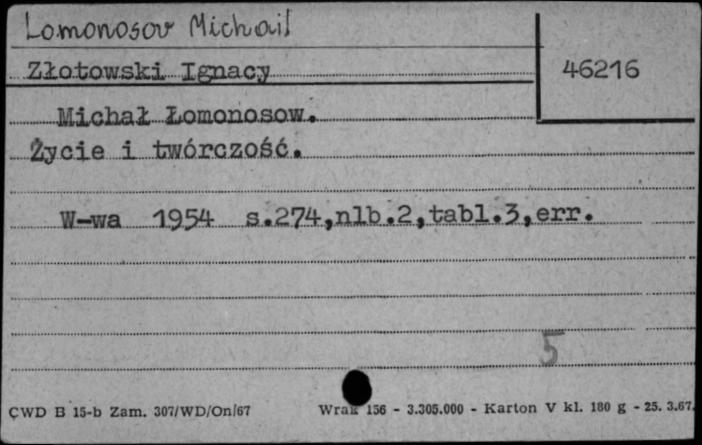 Lomonosov Michail
Złotowski Ignacy
46216
Michał Łomonosow.
Życie i twórczość.
W-wa 1954 s.274,nlb.2,tabl.3,err.
5
CWD B 15-b Zam. 307/WD/On/67 Wrak 156 - 3.305.000 - Karton V kl. 180 g - 25. 3.67.